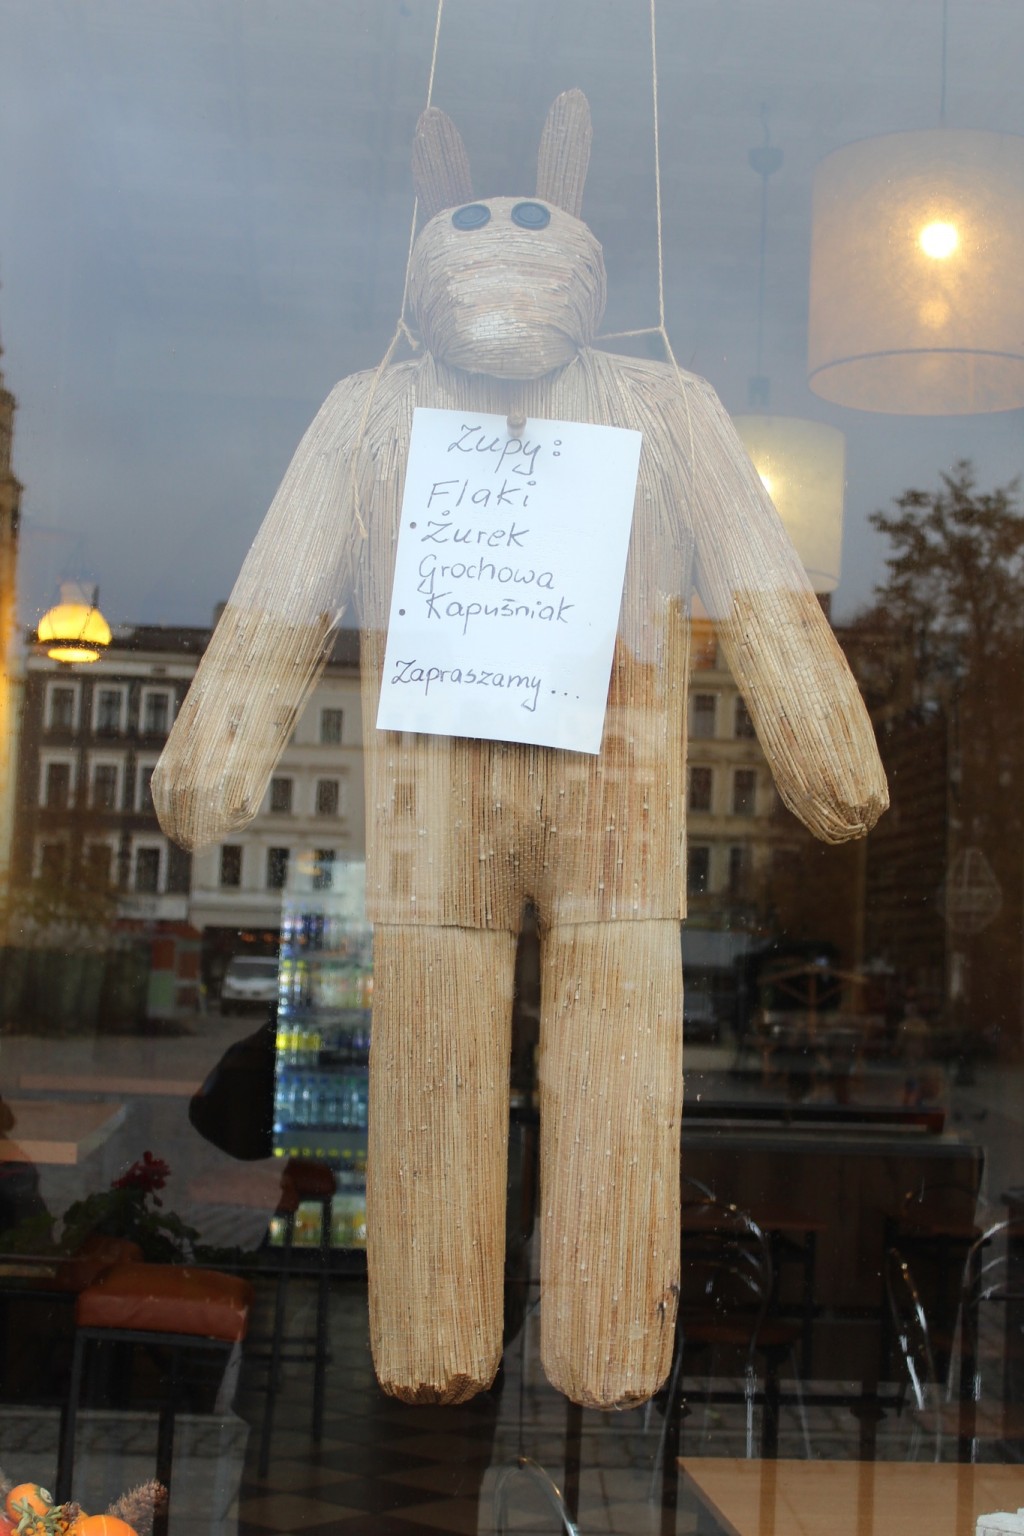 Zupy:
Flaki
• Żurek
Grochowa
• Kapuśniak
Zapraszamy...